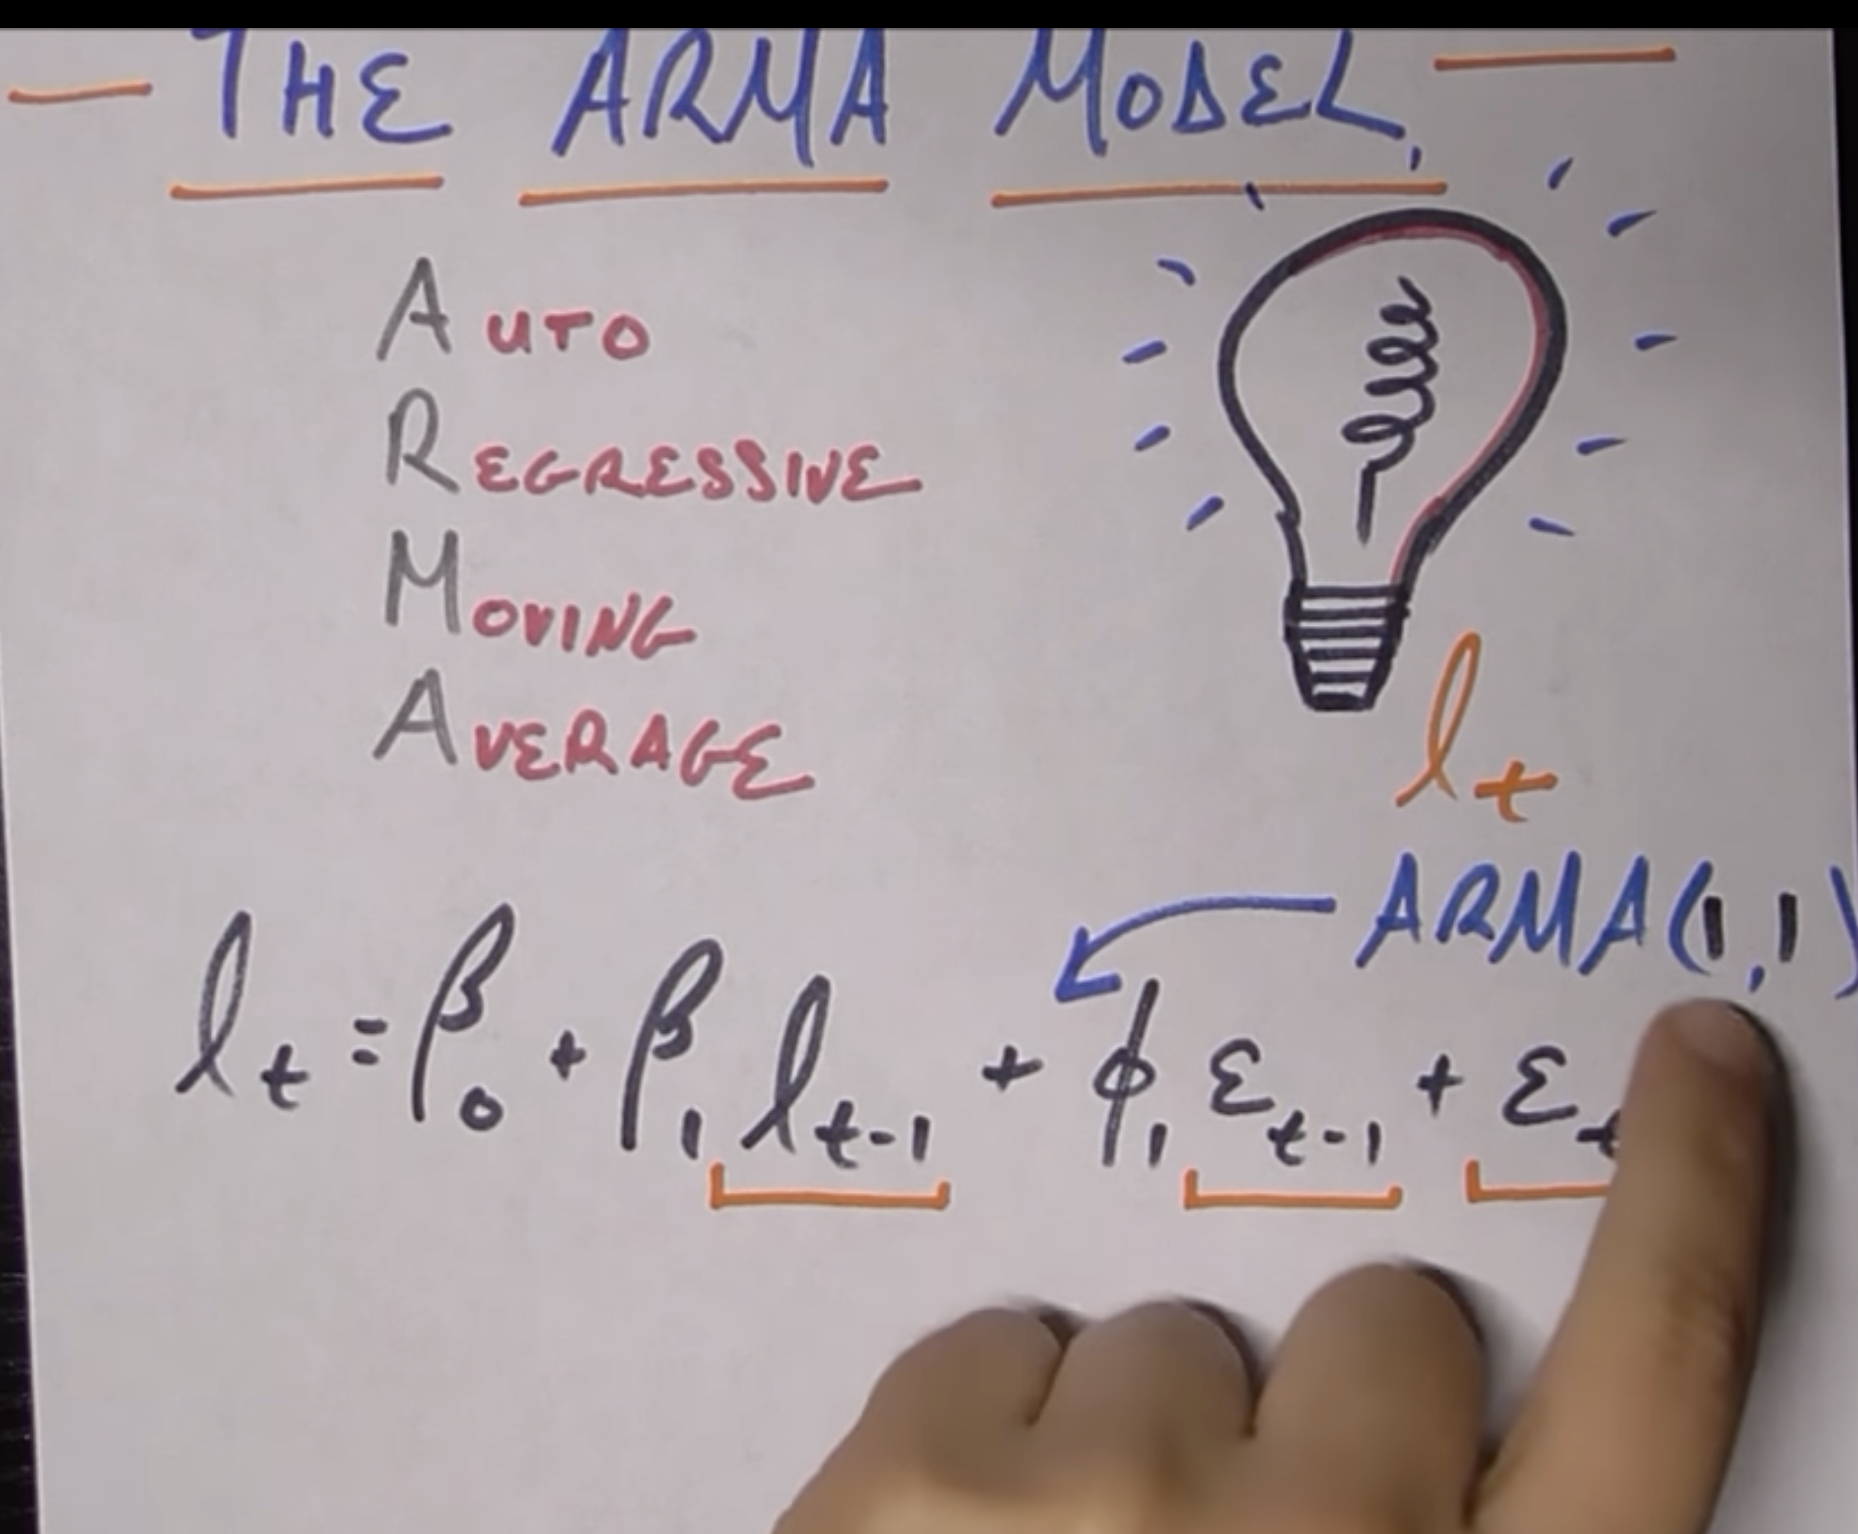 THE ARMA MODEL
AUTO
REGRESSIVE
MOVING
AVERAGE
lt
ARMA(1,1)
lt = β0 + β1 lt-1 + ϕ1 εt-1 + εt